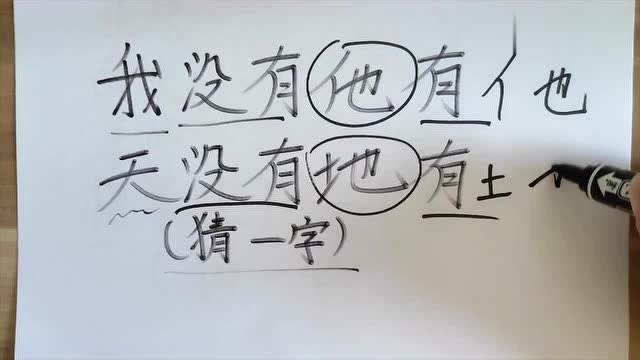 我没有他有亻也
天没有地有土
(猜一字)